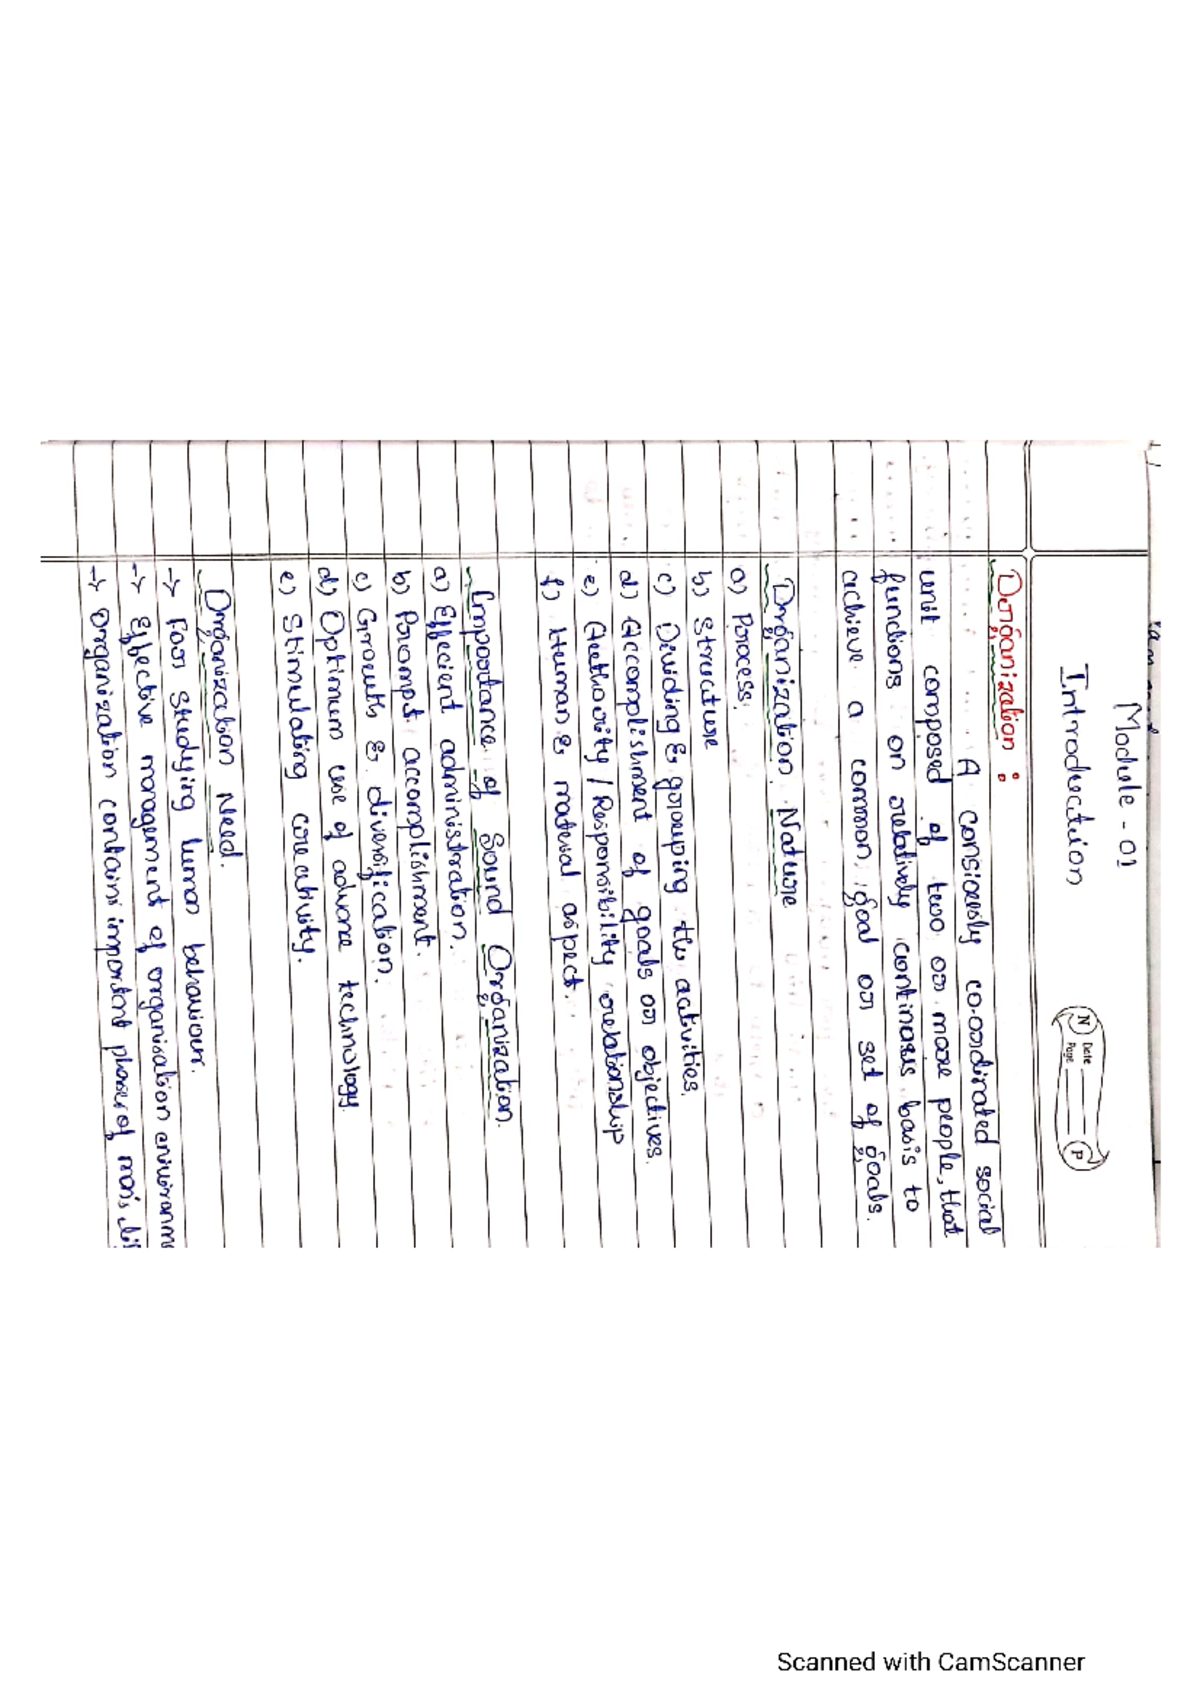 Module - 01
Introduction
N Date
Page P
Organization :
A consicously co-ordinated social
unit composed of two or more people, that
functions on relatively continous basis to
achieve a common goal or set of goals.
Organization Nature
a) Process.
b) Structure
c) Dividing & grouping the activities.
d) Accomplishment of goals or objectives.
e) Authority / Responsibility relationship
f) Human & material aspect.
Importance of Sound Organization.
a) Effecient administration.
b) Prompt accomplishment.
c) Growth & diversification.
d) Optimum use of advance technology.
e) Stimulating creativity.
Organization Need.
→ For studying human behaviour.
→ Effective management of organisation environm
→ Organization contains important phases of man's lif
Scanned with CamScanner